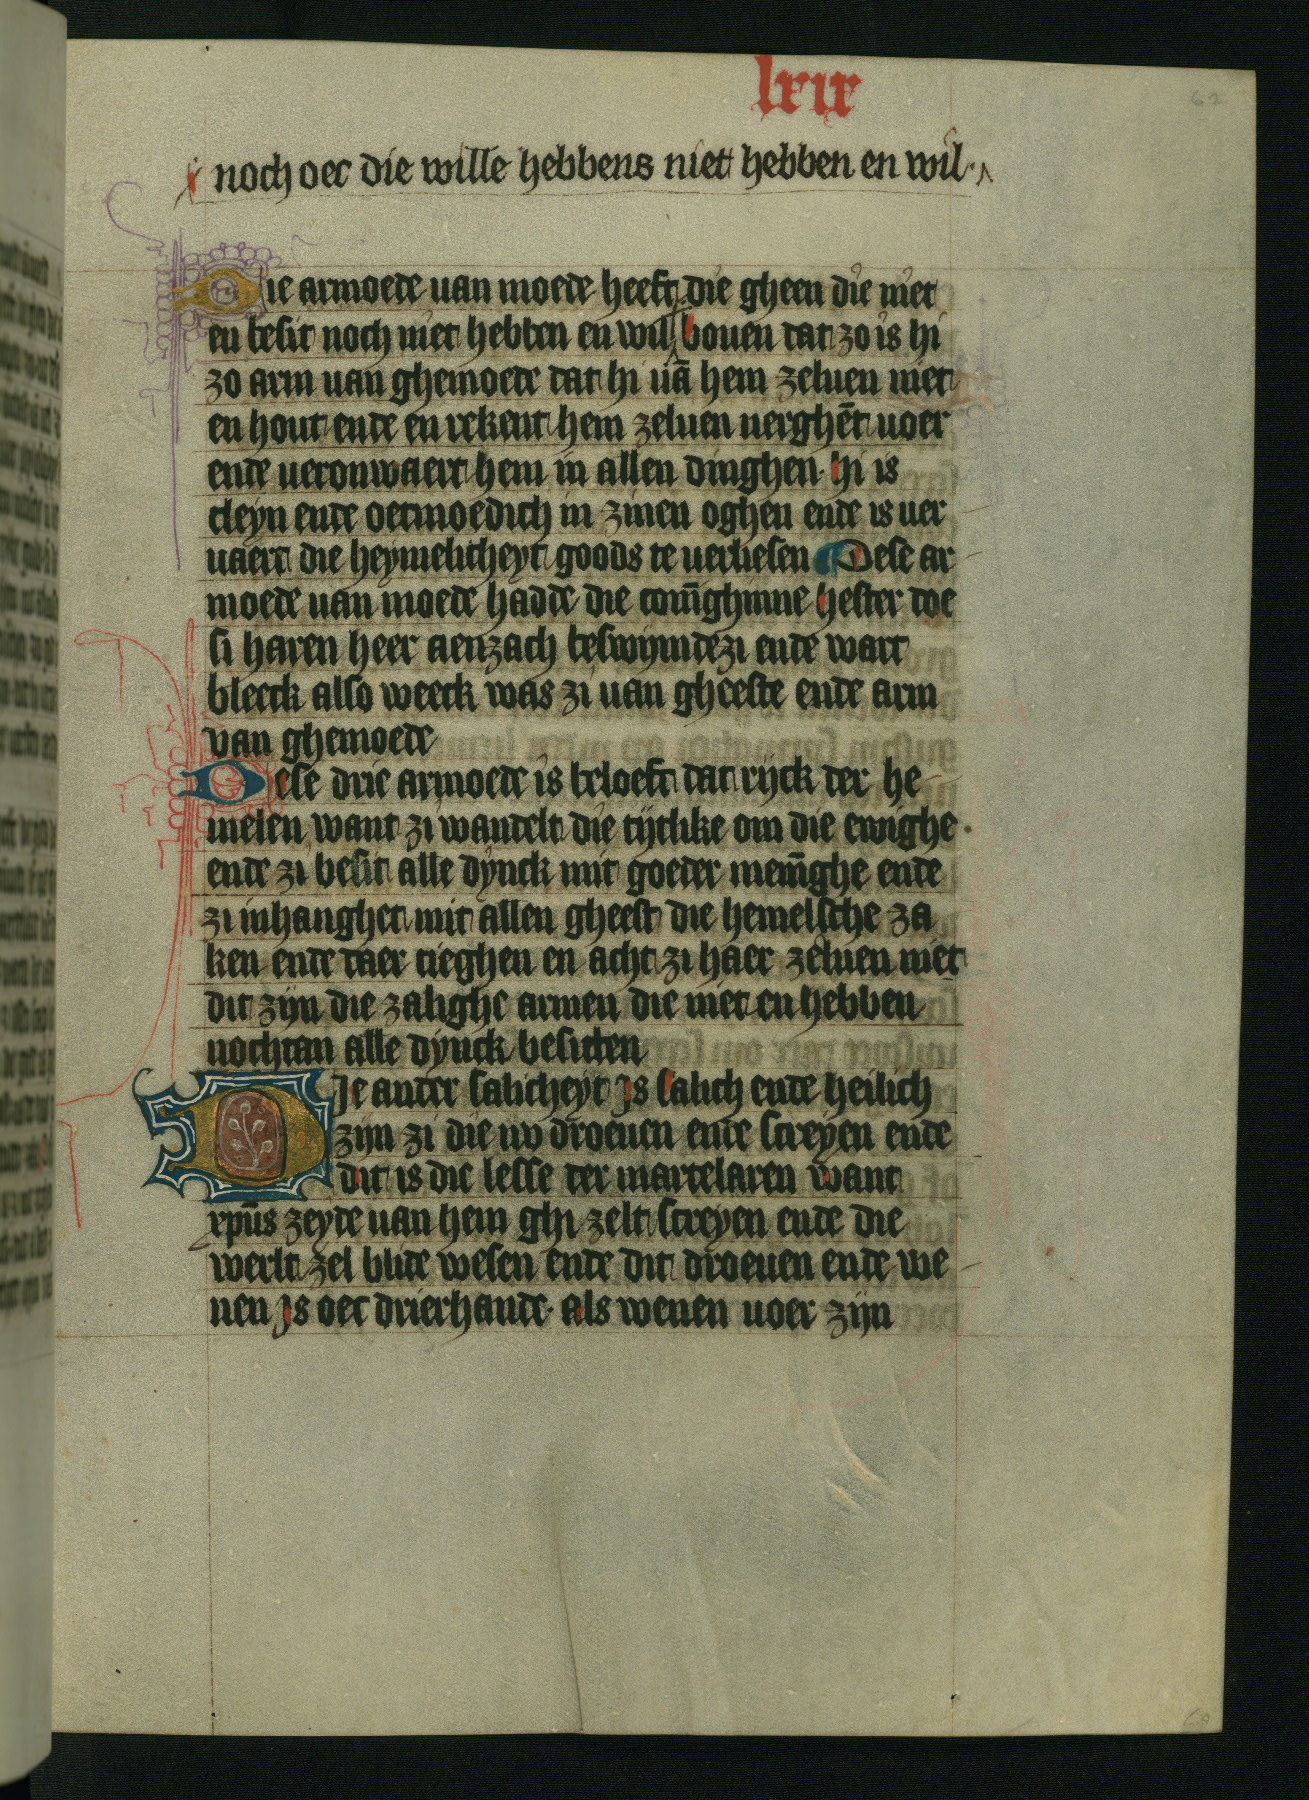 lxix
62
noch oec die wille hebbens niet hebben en wil·
Die armoede uan moede heeft die gheen die niet
en besit noch niet hebben en wil bouen dat zo is hi
zo arm uan ghemoede dat hi uā hem zeluen niet
en hout ende en rekent hem zeluen nerghēt uoer
ende ueronwaert hem in allen dinghen· hi is
cleyn ende oetmoedich in zinen oghen ende is uer
uaert die heymelicheyt goods te uerliesen Dese ar
moede uan moede hadde die conīghinne hester doe
si haren heer aenzach beswijmde zi ende wart
bleeck also weeck was zi uan gheeste ende arm
van ghemoede
Dese drie armoede is beloeft dat rijck der he
melen want zi wandelt die tijtlike om die ewighe·
ende zi besit alle dynck mit goeder menīghe ende
zi inhanghet mit allen gheest die hemelsche za
ken ende daer tieghen en acht zi haer zeluen niet
dit zijn die zalighe armen die niet en hebben
nochtan alle dynck besitten
Die ander salicheyt Is salich ende heilich
zijn zi die nv droeuen ende screyen ende
dit is die lesse der martelaren want
xpūs zeyde uan hem ghi zelt screyen ende die
werlt zel blide wesen ende dit droeuen ende we
nen Is oec drierhande· als wenen uoer zijn